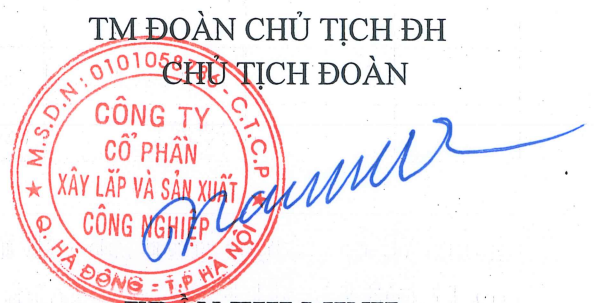 TM ĐOÀN CHỦ TỊCH ĐH
CHỦ TỊCH ĐOÀN
M.S.D.N: 0101058736 - C.T.C.P
CÔNG TY
CỔ PHẦN
XÂY LẮP VÀ SẢN XUẤT
CÔNG NGHIỆP
Q. HÀ ĐÔNG - T.P HÀ NỘI